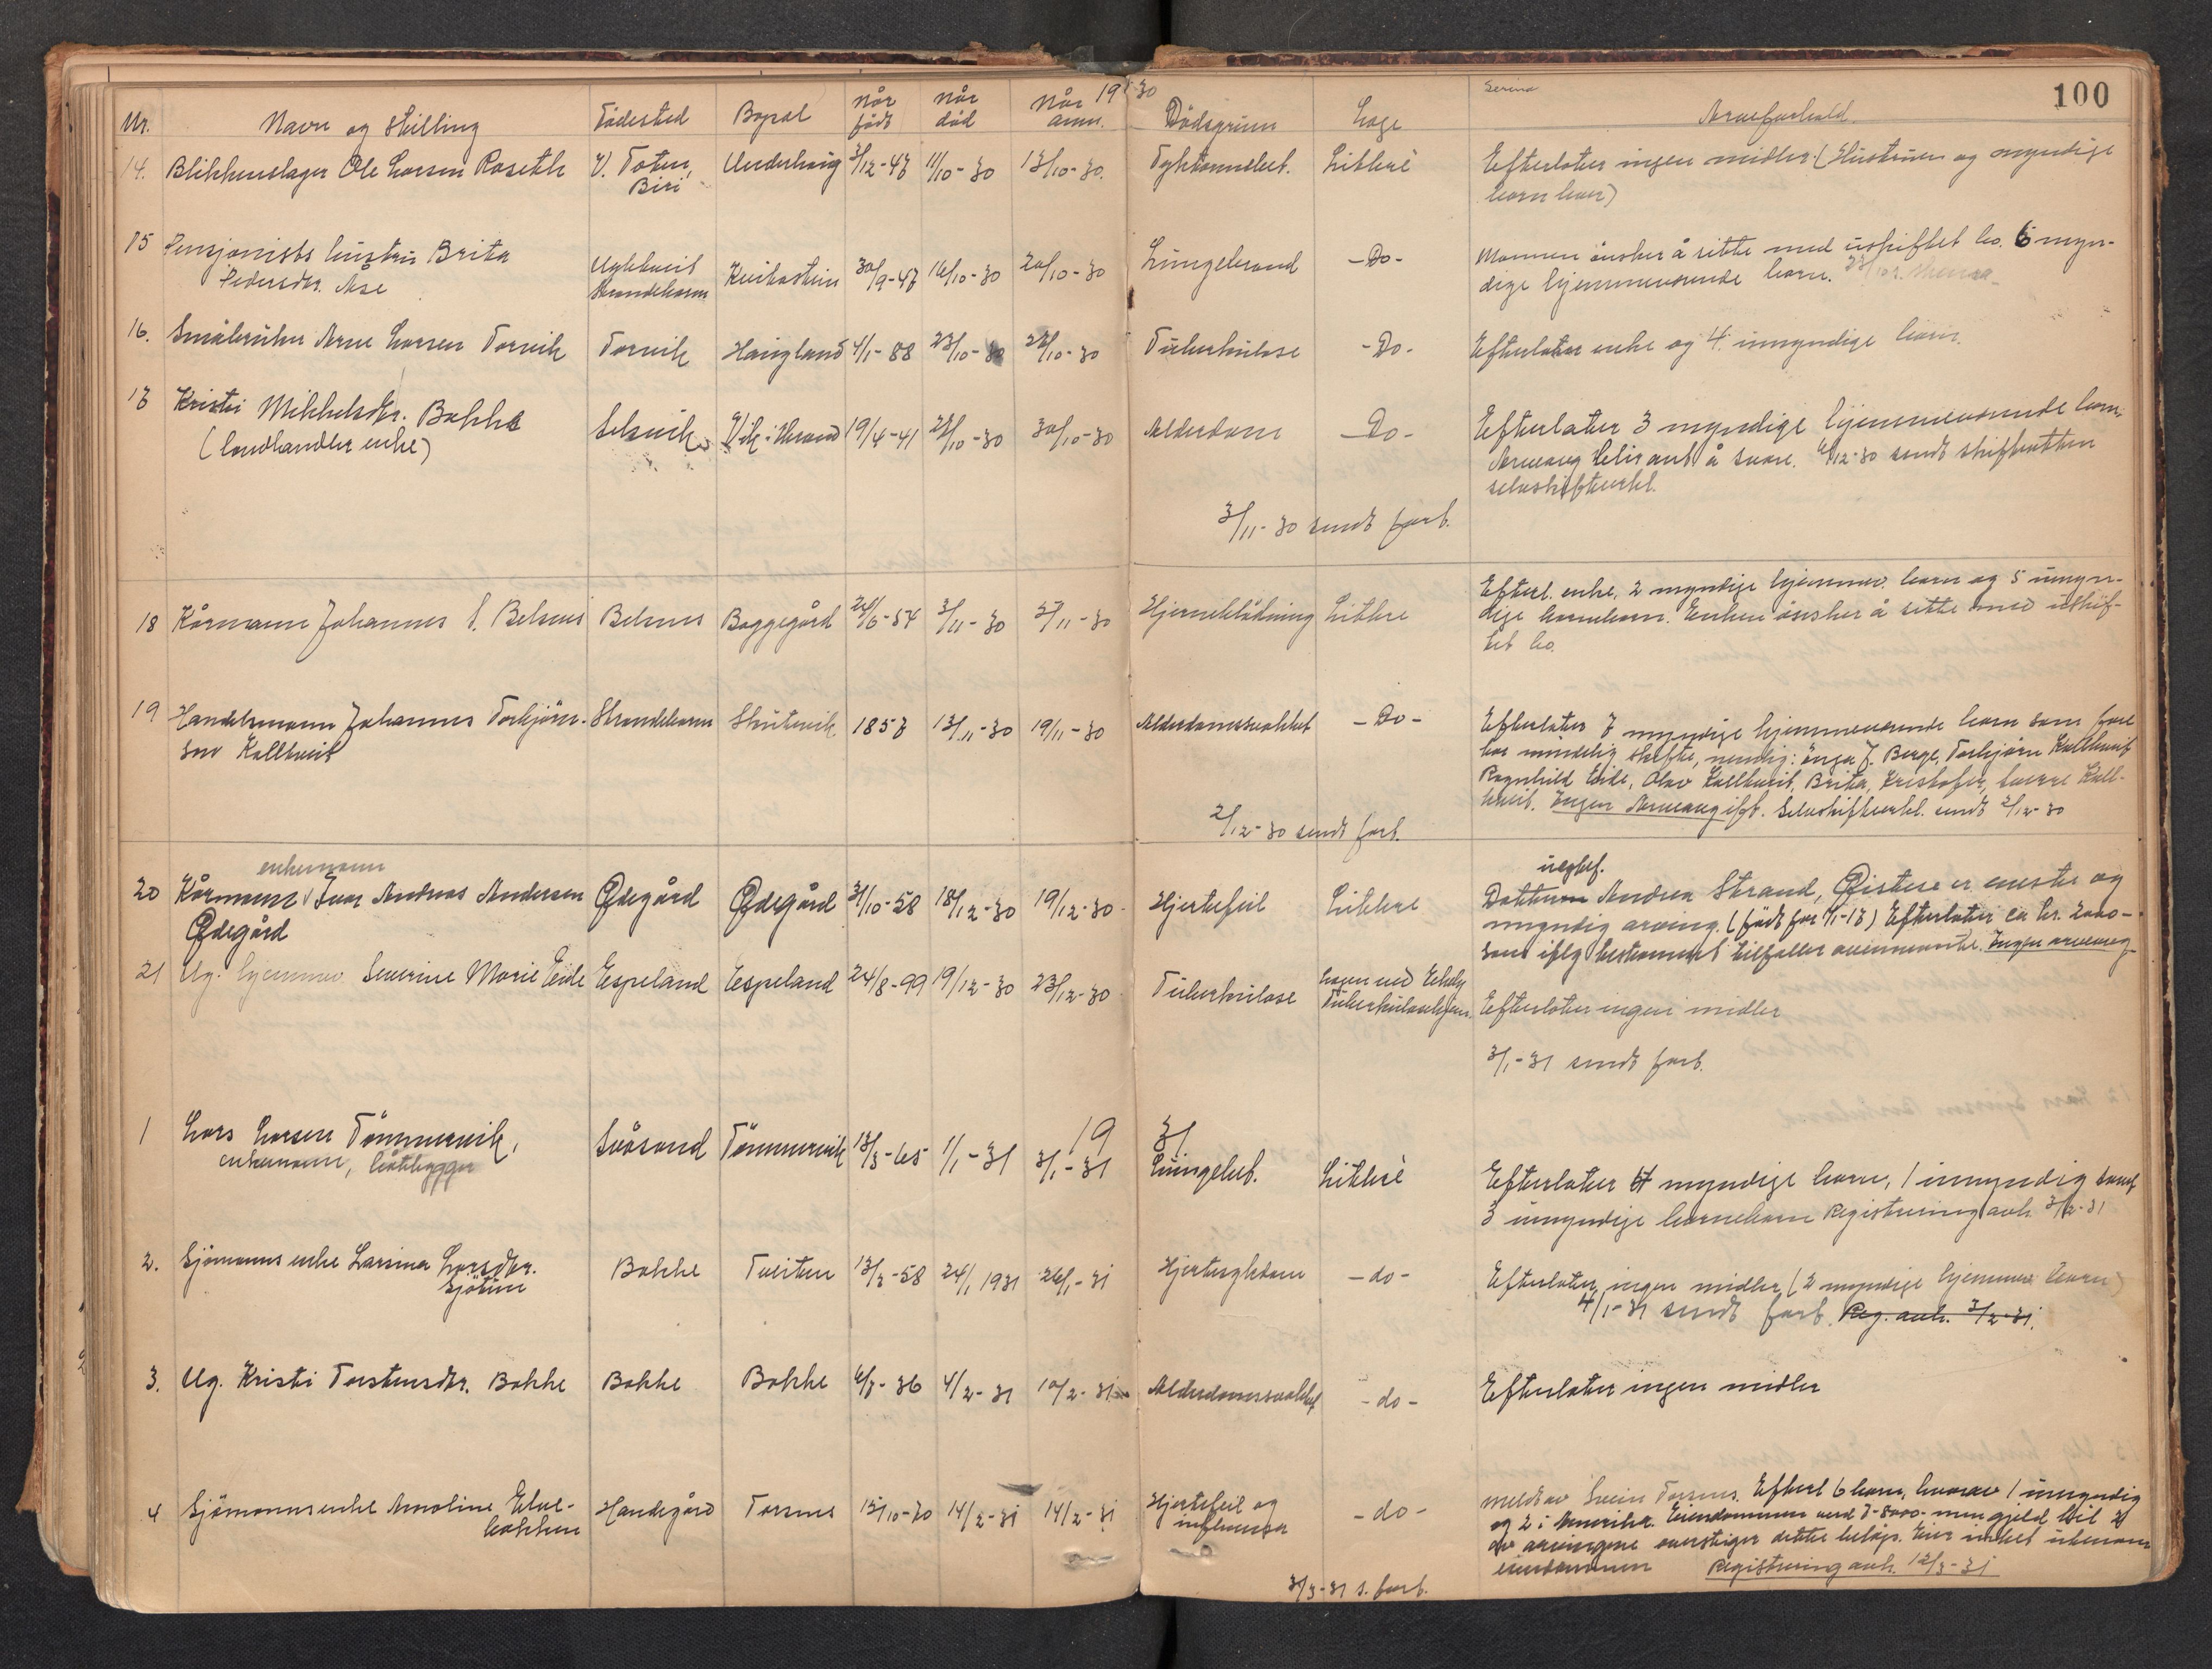 100
1930
Nr. Navn og Stilling Födested Bopæl Når född Når död Når anm. Dödsgrunn Læge Arveforhold.
14. Blikkenslager Ole Larsen Roseth V. Toten, Biri Underhaug 3/12-47 11/10-30 13/10-30. Tykktarmbet. Likleré Efterlater ingen midler (Hustruen og myndige
barn lever)
15 Pensjonists hustru Brita
Pedersdtr. Åse Strandebarm 30/9-47 16/10-30 20/10-30 Lungebrand -Do- Mannen önsker å sitte med uskiftet bo. 6 myn-
dige hjemmeværende barn.
16. Småbruker Arne Larsen Torvik Torvik Haugland 4/1-88 23/10-30 28/10-30 Tuberkulose -Do- Efterlater enke og 4 umyndige barn.
17 Kristi Mikkelsdtr. Bakke
(landhandler enke) Selsvik Vik i Strand 19/4-41 28/10-30 30/10-30 Alderdom -Do- Efterlater 3 myndige hjemmeværende barn.
Arveavg. blir ant. å svare. 6/12-30 sendt skifteretten
selvskifteerkl.
3/11-30 sendt forb.
18 Kårmann Johannes S. Belsnes Belsnes Baggegård 26/6-54 3/11-30 5/11-30 Hjerneblödning Likleré Efterl. enke, 2 myndige hjemmev. barn og 5 umyn-
dige barnebarn. Enken önsker å sitte med uskif-
tet bo.
19 Handelsmann Johannes Torbjörn-
sen Kallkveit Strandebarm Skutevik 1857 13/11-30 19/11-30 Alderdomssvakhet -Do- Efterlater 7 myndige hjemmeværende barn som fore
tar mindelig skifte, nemlig: Inga J. Berge, Torbjörn Kallkveit
Ragnhild Eide, Olav Kallkveit, Brita, Kristofer, Sverre Kall-
kveit. Ingen Arveavgift. Selvskifteerkl. sendt 2/12-30
2/12-30 sendt forb.
enkemann
20 Kårmann Ivar Andreas Andersen
Ødegård Ødegård Ødegård 31/10-58 18/12-30 19/12-30. Hjertefeil Likleré Datteren Andrea Strand, Øistese er eneste og
myndig arving. (född för 1/1-13) Efterlater ca kr. 2000-
som iflg testament tilfaller ovennevnte. Ingen arveavg.
21 Ug. hjemmev. Severine Marie Eide Espeland Espeland 24/8-99 19/12-30 23/12-30. Tuberkulose Legen ved
Tuberkulosehjem. Efterlater ingen midler
3/1-31 sendt forb.
1931
1 Lars Larsen Tömmervik,
enkemann, båtbygger Svåsand Tömmervik 13/3-65 1/1-31 3/1-31 Lungebet. Likleré Efterlater 4 myndige barn, 1 umyndig samt
3 umyndige barnebarn Registrering avh. 3/2-31
2. Sjömanns enke Larsina Larsdtr.
Sjötun Bakke Tveiten 13/3-58 24/1 1931 26/1-31 Hjertesykdom -do- Efterlater ingen midler (2 myndige hjemmev. barn)
4/1-31 sendt forb. Reg. avh. 3/2-31.
3. Ug. Kristi Torstensdtr. Bakke Bakke Bakke 4/8-36 4/2-31 10/2-31 Alderdomssvakhet -do- Efterlater ingen midler
4 Sjömannsenke Amoline Elve-
bakken Handegård Torsnes 15/10-70 14/2-31 14/2-31 Hjertefeil og
influensa -do- meldt av Svein Torsnes. Efterl 6 barn, hvorav 1 umyndig
og 2 i Amerika. Eiendommen verd 7-8000- men gjeld til 2
av arvingene overstiger dette belöp. Eier intet utenom
eiendommen Registrering avh. 12/3-31
3/3-31 s. forb.